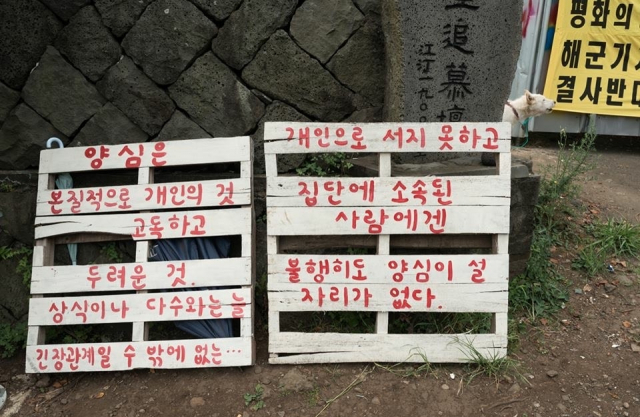 양심은
본질적으로 개인의 것
고독하고
두려운 것.
상식이나 다수와는 늘
긴장관계일 수 밖에 없는…
개인으로 서지 못하고
집단에 소속된
사람에겐
불행히도 양심이 설
자리가 없다.
追慕壇
江汀一九
평화의
해군기
결사반대